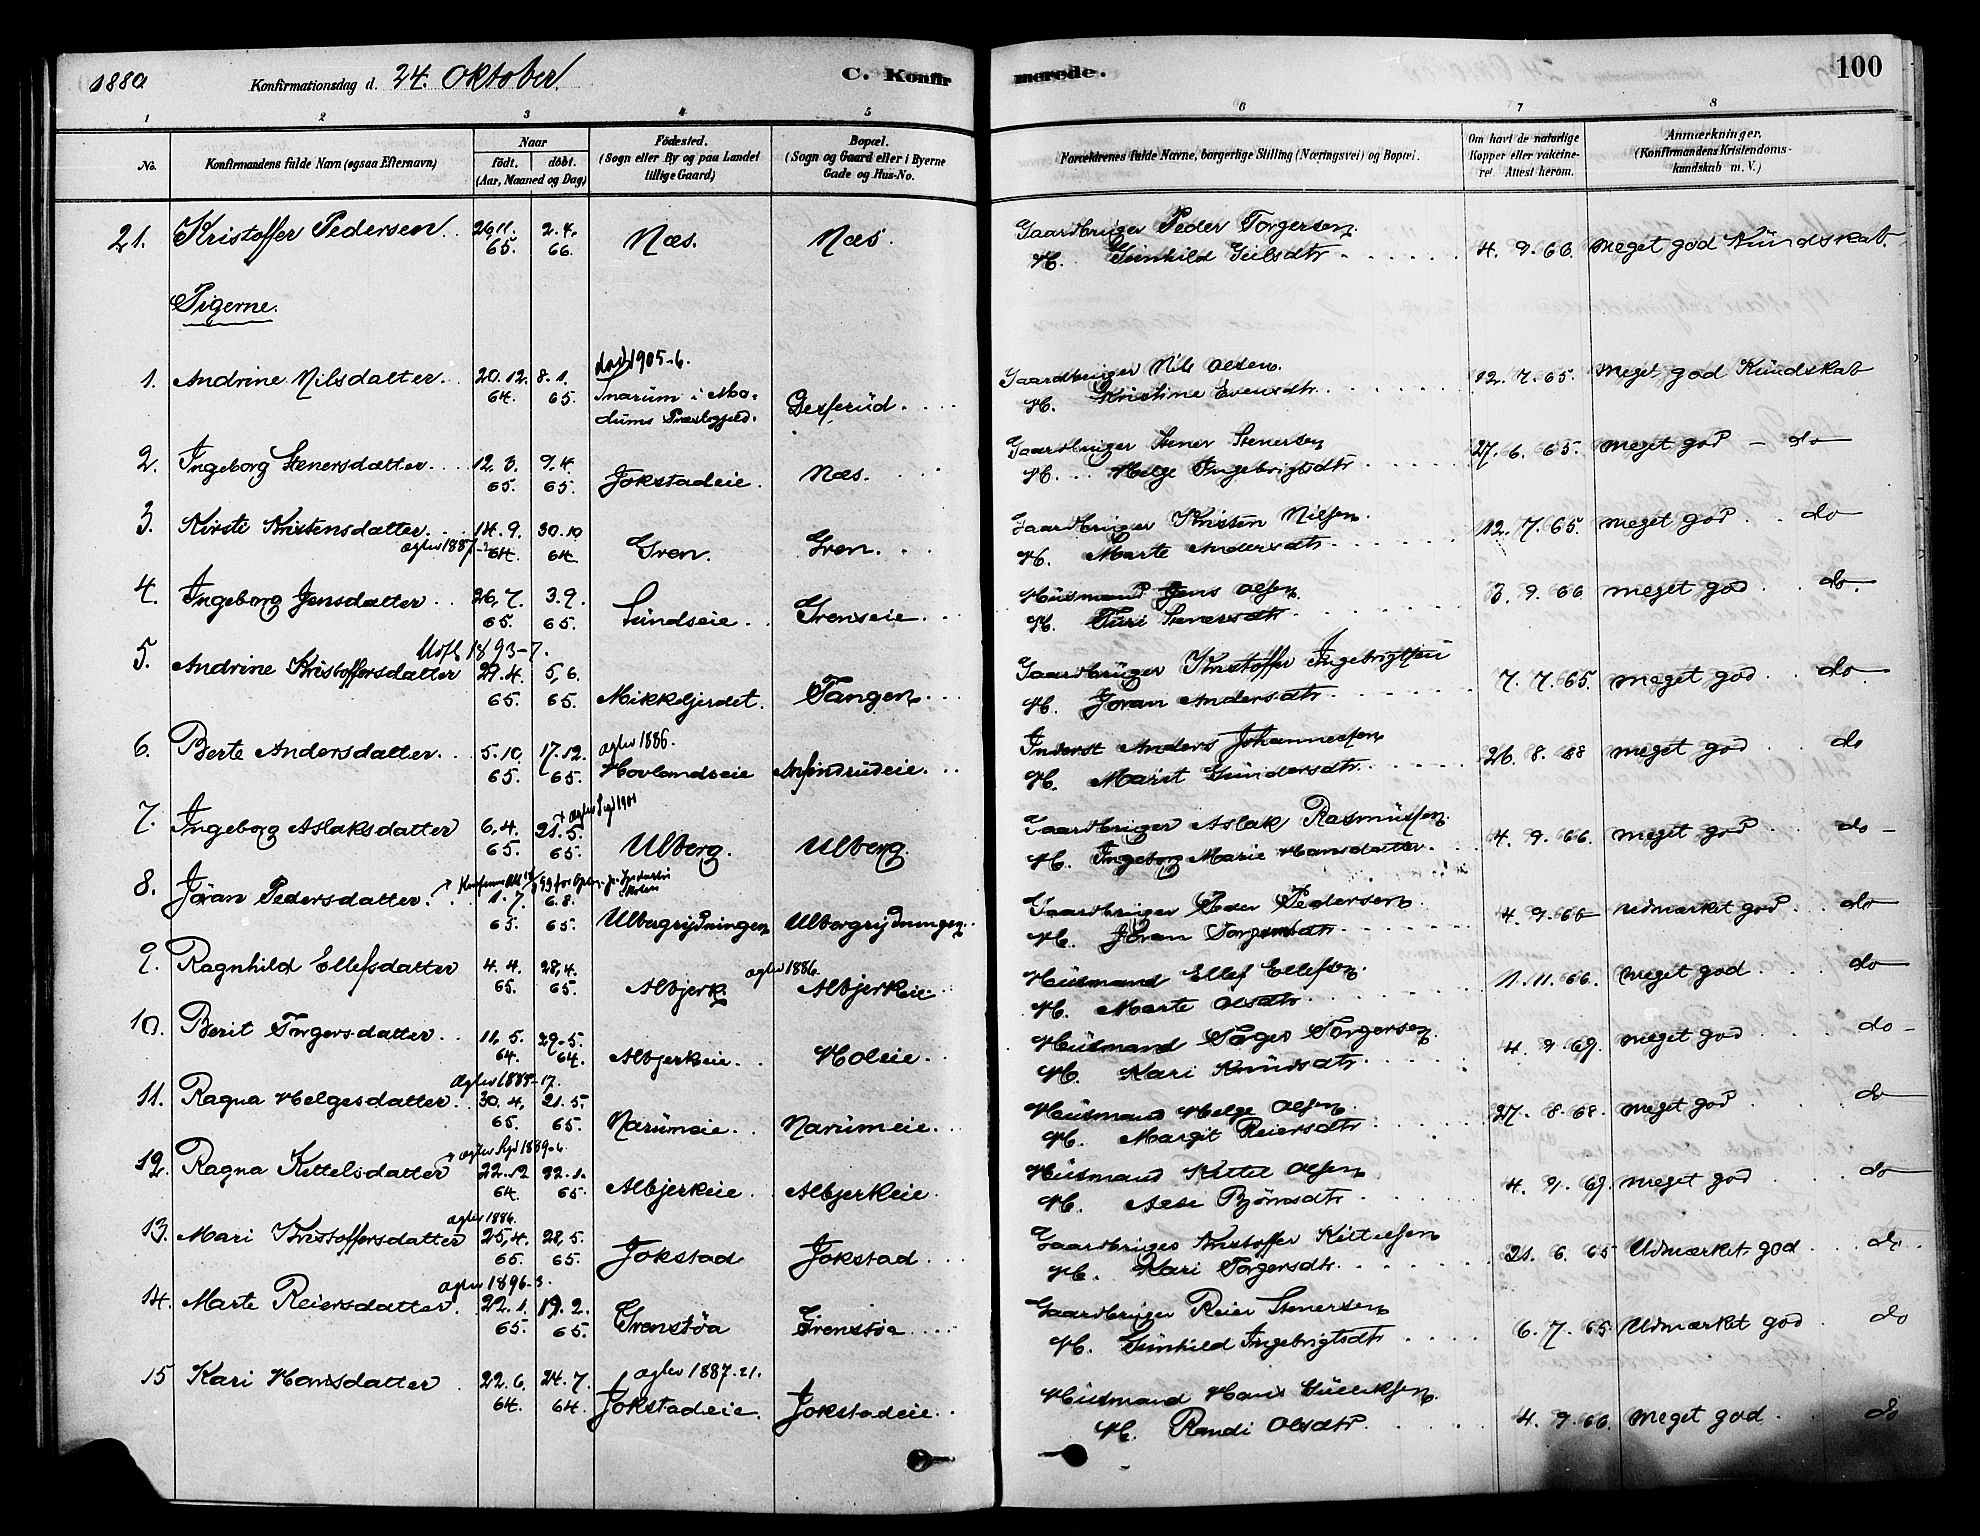 1880 Konfirmationsdag d. 24. Oktober. C. Konfirmerede. 100
1 2 3 4 5 6 7 8
No. Konfirmandens fulde Navn (ogsaa Efternavn) Naar født. døbt. (Aar, Maaned og Dag) Fødested. (Sogn eller By og paa Landet tillige Gaard) Bopæl. (Sogn og Gaard eller i Byerne Gade og Hus-No. Forældrenes fulde Navne, borgerlige Stilling (Næringsvei) og Bopæl. Om havt de naturlige Kopper eller vakcineret. Attest herom. Anmærkninger. (Konfirmandens Kristendomskundskab m. V.)
21. Kristoffer Pedersen. 26.11. 65. 2.4. 66. Næs. Næs. Gaardbruger Peder Torgersen. 4. 9. 66. Meget god Kundskab.
H. Gunhild
Pigerne.
1. Andrine Nilsdatter. 20.12. 64. 8.1. 65. Snarum i Modums Præstegjeld. Gaardbruger Nils Olsen. 12. 7. 65. Meget god Kundskab
H. Kristine Evensdtr.
2. Ingeborg Stenersdatter. 12.3. 65. 9.4. 65. Jokstadeie. Næs. Gaardbruger Stener Stenersen 27. 6. 65. meget god - do
H. Helge Ingebrigtsdtr.
3. Kirsti Kristensdatter. 14.9. 64. 30.10 64. Gren. Gren. Gaardbruger Kristen Nilsen. 12. 7. 65. meget god. do
aglev 1887
H. Marte Andersdtr.
4. Ingeborg Jensdatter. 26.7. 65. 3.9. 65. Lundseie. Grenseie. Husmand Jens Olsen. 3. 9. 66 meget god. do.
H. Turi Stenersdtr.
5. Andrine Kristoffersdatter 29.4. 65. 5.6. 65. Mikkeljerdet. Tangen. Gaardbruger Kristoffer Ingebrigtsen 7. 7. 65. meget god. do.
Udfl. 1893-7.
H. Joran Andersdtr.
6. Berte Andersdatter. 5.10. 65. 17.12. 65. aglev 1886. Hovlandseie Anfindrudeie. Inderst Anders Johannessen 26. 8. 68 meget god. do
H. Marit Gundersdtr.
7. Ingeborg Aslaksdatter 6.4. 65. 21.5. 65. Ulberg. Ulberg. Gaardbruger Aslak Rasmussen. 4. 9. 66. meget god. do
H. Ingeborg Marie Hansdatter.
8. Jöran Pedersdatter. 1.7. 65. 6.8. 65. Ulbergrydningen Ulbergrydningen. Gaardbruger Peder Pedersen. 4. 9. 66 Udmærket god. do
H. Joran
9. Ragnhild Ellefsdatter 4.4. 65. 28.4. 65. Albjerk aglev 1886. Albjerkeie. Husmand Ellef Ellefsen. 1. 11. 66. meget god. do
H. Marte Olsdtr.
10. Berit Torgersdatter. 11.5. 64. 29.5. 64. Albjerkeie. Holeie. Husmand Torger Torgersen. 4. 9 69. meget god do
H. Kari Knudsdtr.
11. Ragna Helgesdatter. 30.4. 65. 21.5. 65. Narumeie. Narumeie. Husmand Helge Olsen. 27. 8. 68. meget god do
H. Margit Reiersdtr.
12. Ragna Kittelsdatter 22.12 64. 22.1. 65. Albjerkeie. Albjerkeie. Husmand Kittel Olsen 4. 9. 69. meget god. do
H. Bjørnsdtr.
13. Mari Kristoffersdatter 25.4. 65. 28.5. 65. Jokstad Jokstad. Gaardbruger Kristoffer Kittelsen 21. 6. 65 Udmærket god. do.
aglev 1886.
H. Kari Torgersdtr.
14. Marte Reiersdatter. 22.1. 65. 19.2. 65. Grenstøa Grenstøa. Gaardbruger Reier Stenersen 6. 7. 65 Udmærket god. do
aglev 1896-3.
H. Gunhild Ingebrigtsdtr.
15 Kari Hansdatter 22.6. 64. 24.7. 64. aglev 1887-21. Jokstadeie. Jokstadeie. Husmand Hans Gulliksen. 4. 9. 66. meget god. do
H. Randi Olsdtr.